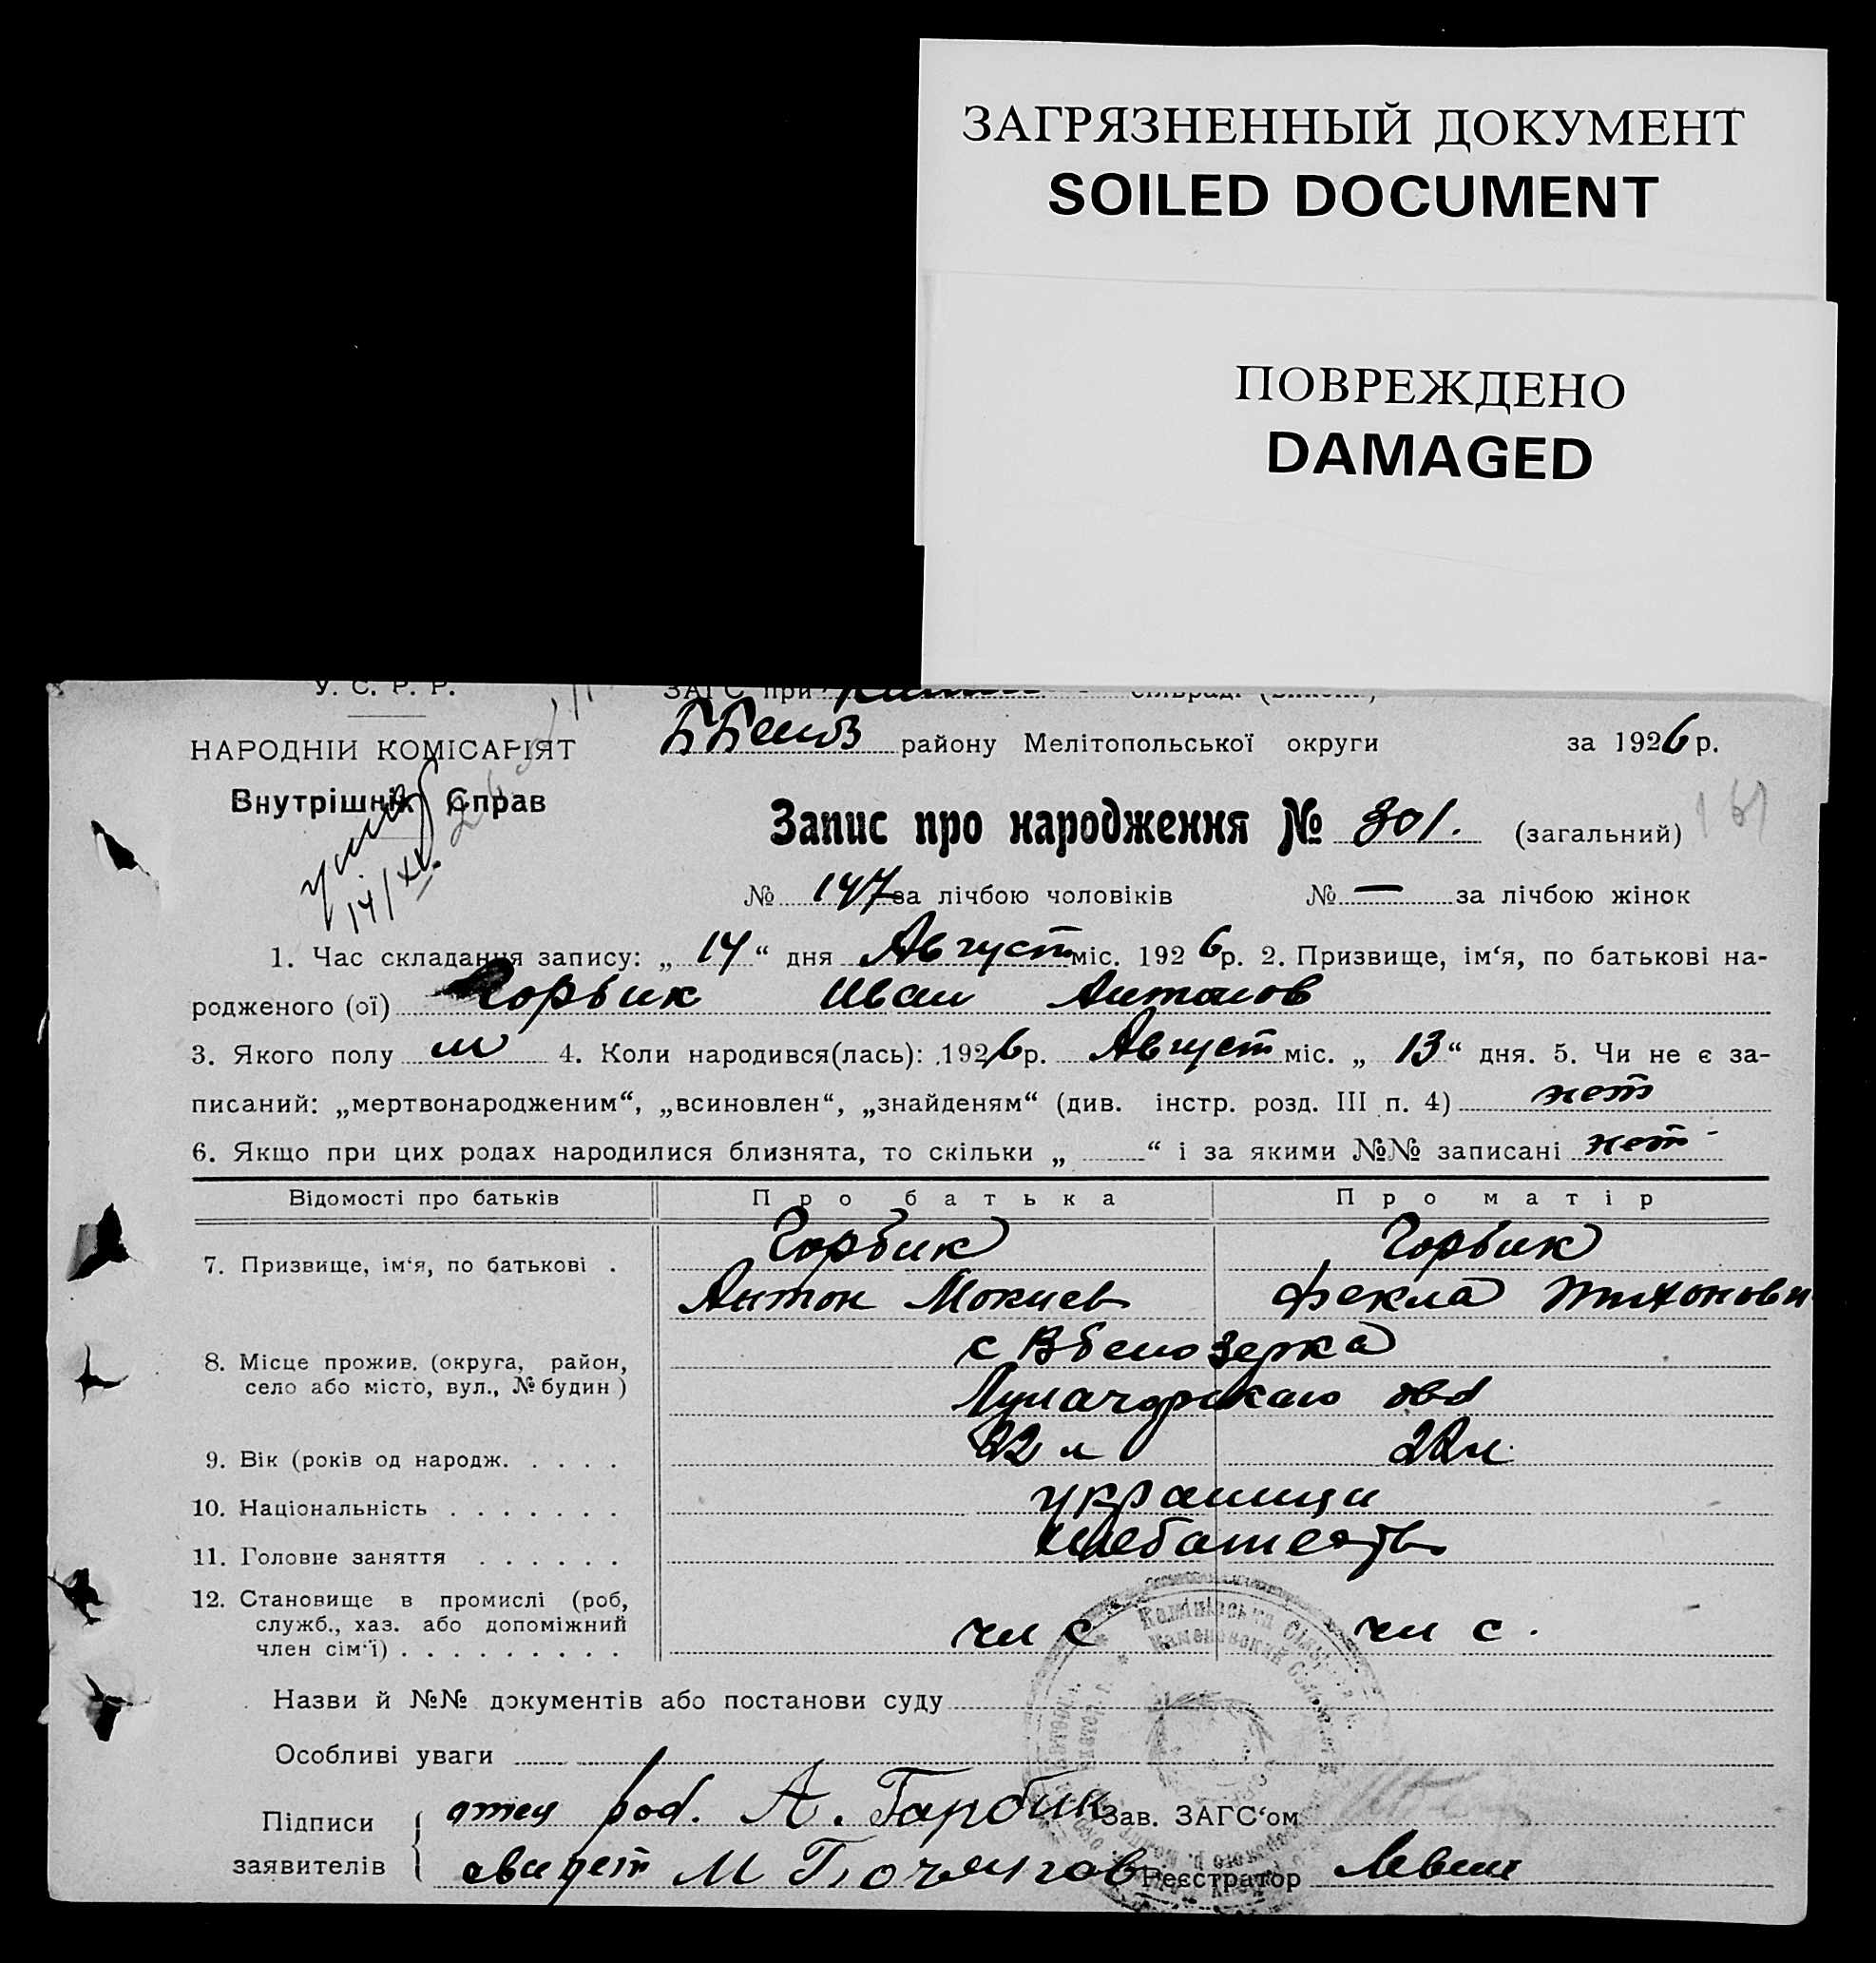 ЗАГРЯЗНЕННЫЙ ДОКУМЕНТ
SOILED DOCUMENT
ПОВРЕЖДЕНО
DAMAGED
У. С. Р. Р.
ЗАГС при
НАРОДНІЙ КОМІСАРІЯТ
Внутрішніх Справ
району Мелітопольської округи за 1926 р.
14/XI.
Запис про народження № 301. (загальний)
№ 147 за лічбою чоловіків № — за лічбою жінок
1. Час складання запису: „ 14 “ дня Август міс. 192 6 р. 2. Призвище, ім‘я, по батькові на-
родженого (ої) Горбик Иван Антонов
3. Якого полу м 4. Коли народився(лась): 1926 р. Август міс. „ 13 “ дня. 5. Чи не є за-
писаний: „мертвонародженим“, „всиновлен“, „знайденям“ (див. інстр. розд. III п. 4) нет
6. Якщо при цих родах народилися близнята, то скільки „ “ і за якими №№ записані нет
Відомості про батьків Про батька Про матір
7. Призвище, ім‘я, по батькові . Горбик Горбик
Антон Мокиев Фекла Тихоновн
8. Місце прожив. (округа, район, с Вбелозерка
село або місто, вул., № будин)
9. Вік (років од народж. . . . . 22 л 22 л.
10. Національність . . . . . . . украинци
11. Головне заняття . . . . . . хлебопаш
12. Становище в промислі (роб,
служб., хаз. або допоміжний
член сім‘ї) . . . . . . . . . чл с чл с.
Назви й №№ документів або постанови суду
Особливі уваги
Підписи отец род. А. Гарбик Зав. ЗАГС‘ом
заявителів свидет М Реєстратор